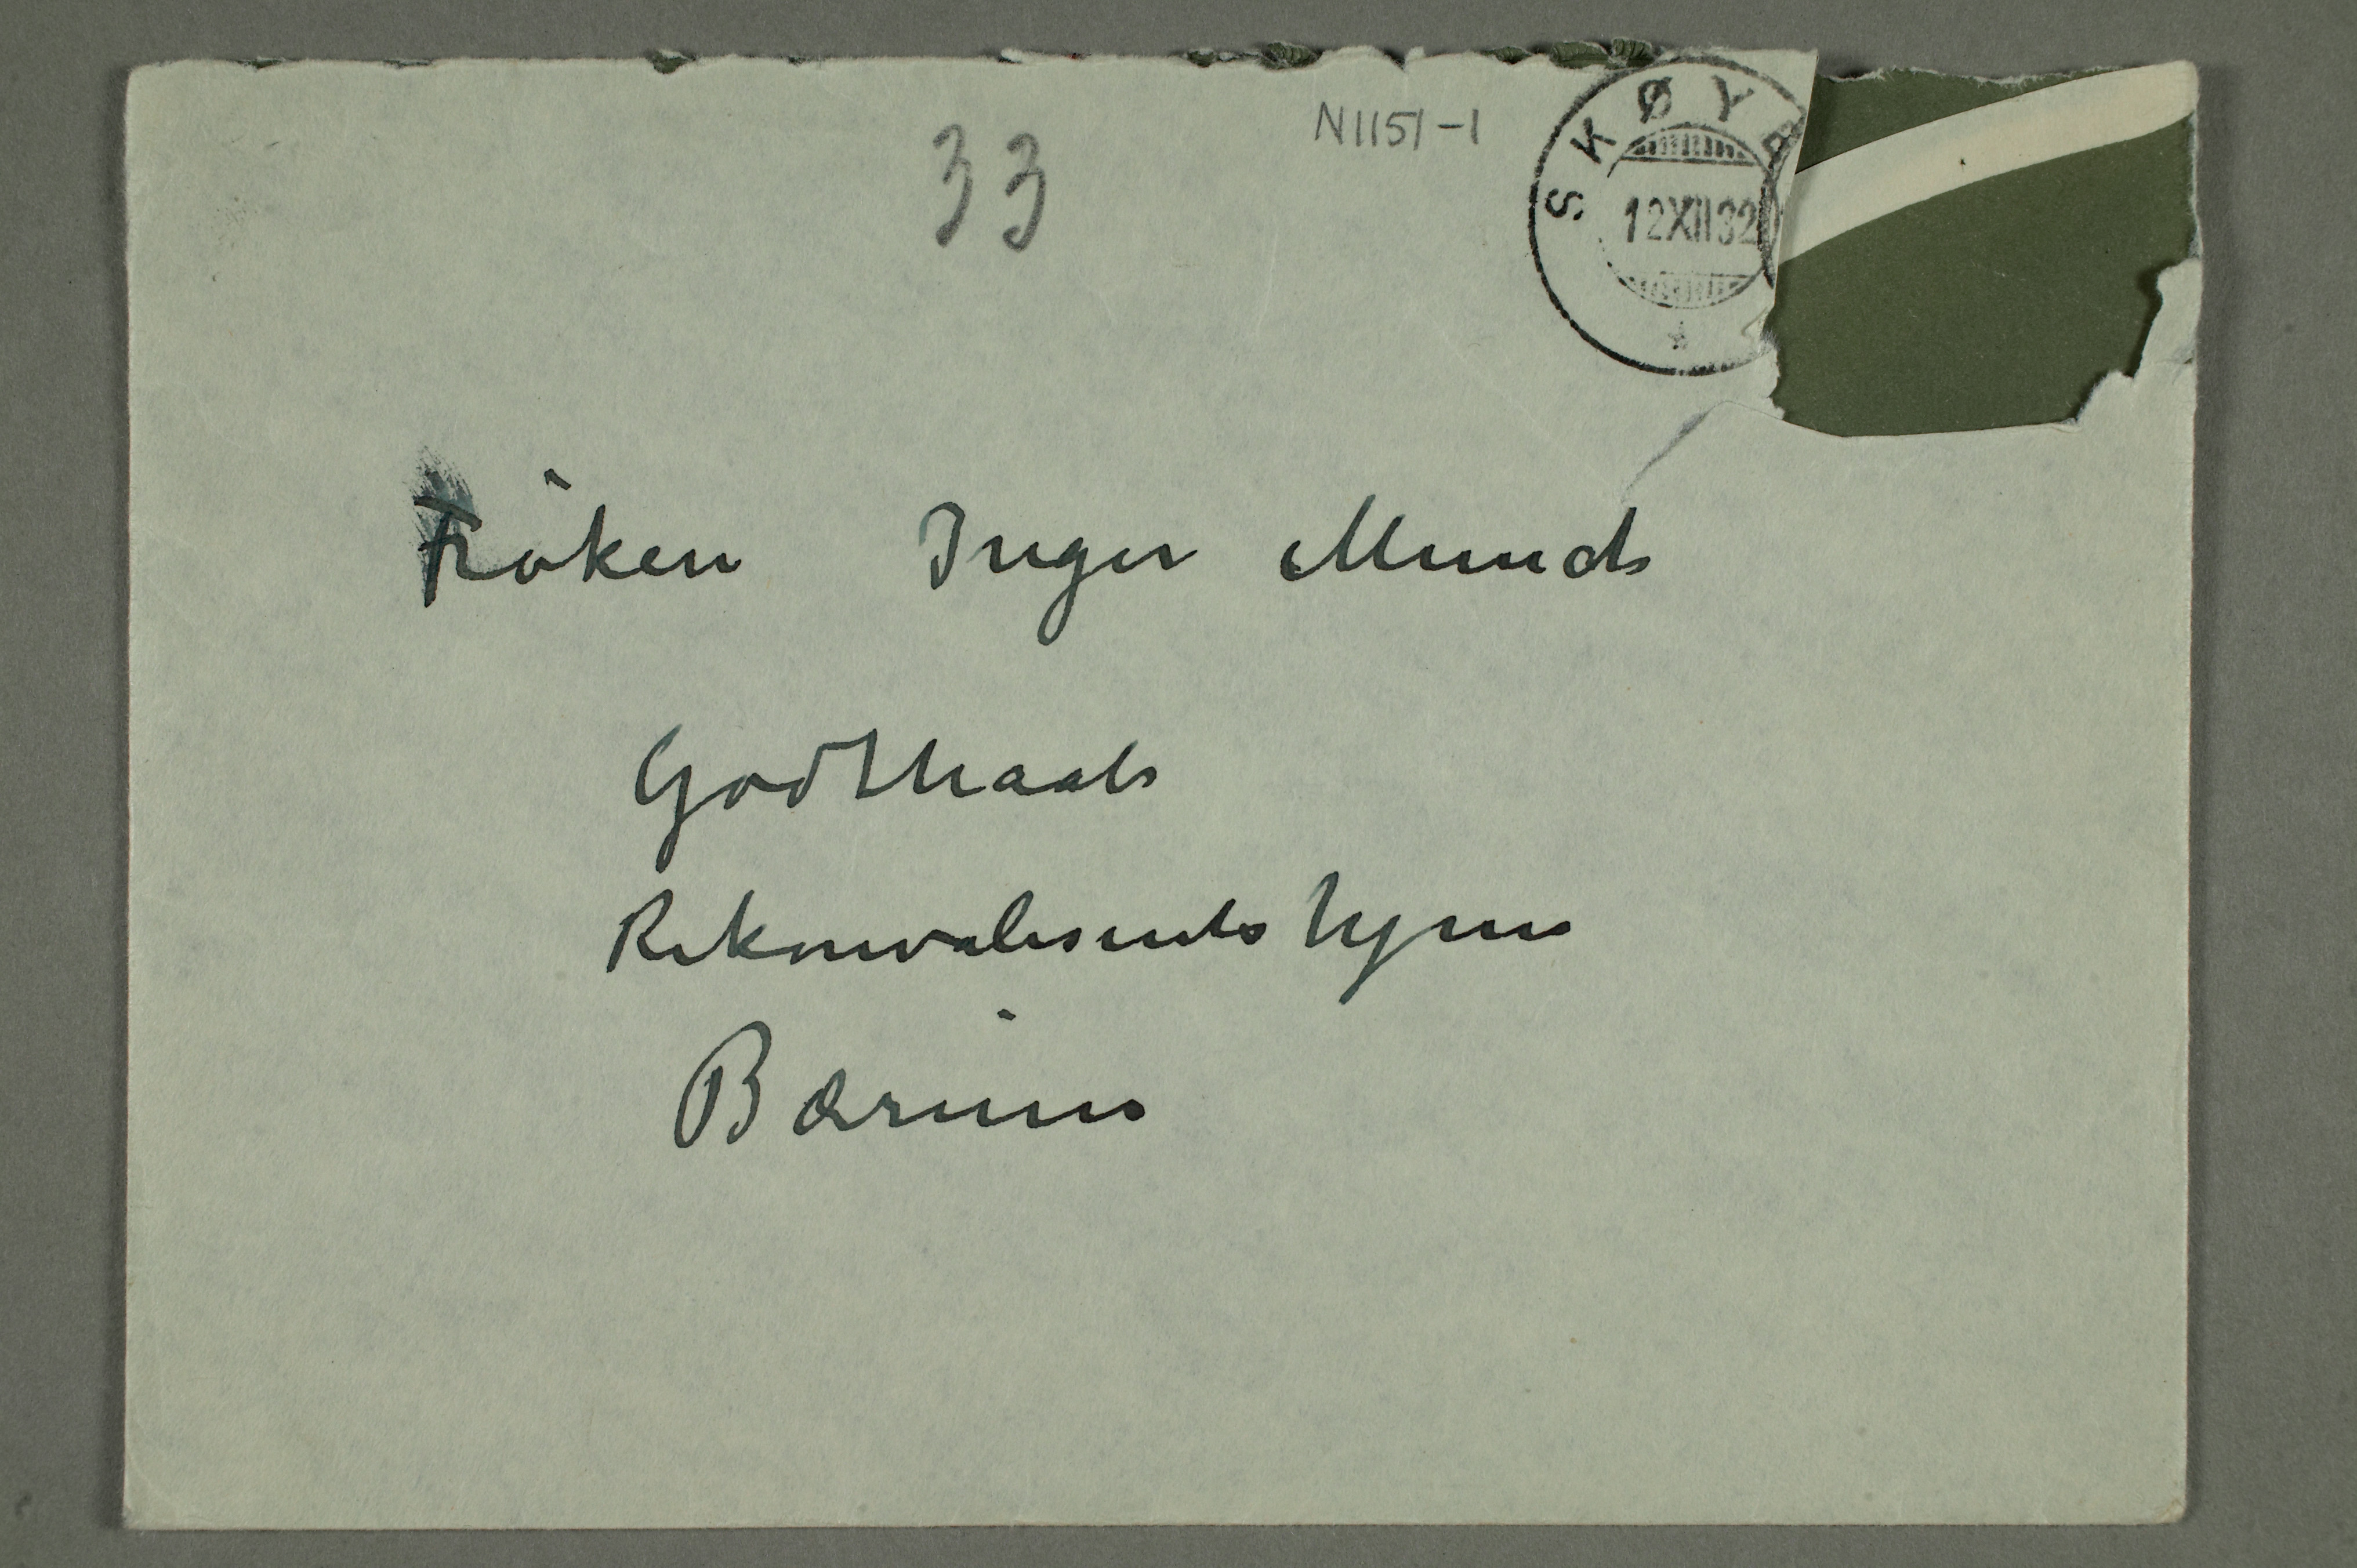 33
N1151-1
SKØYE
12XII32
Fröken Inger Munch
Godthaab
Rekonvalesentshjem
Bærum